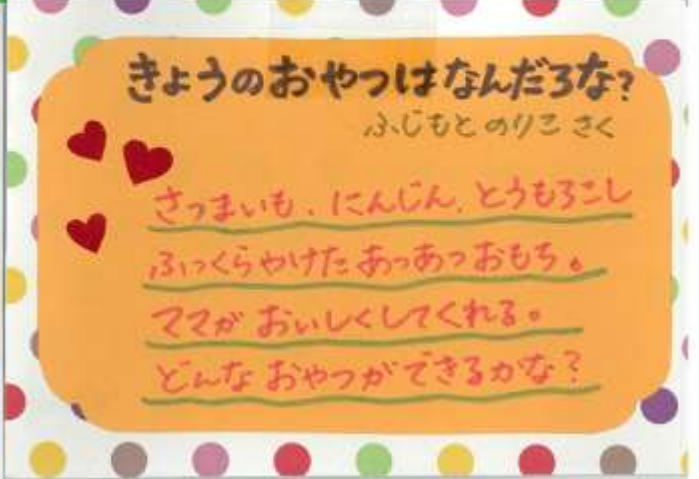 きょうのおやつはなんだろな?
ふじもと のりこ さく
さつまいも、にんじん、とうもろこし
ふっくらやけた あつあつ おもち。
ママが おいしくしてくれる。
どんな おやつが できるかな?